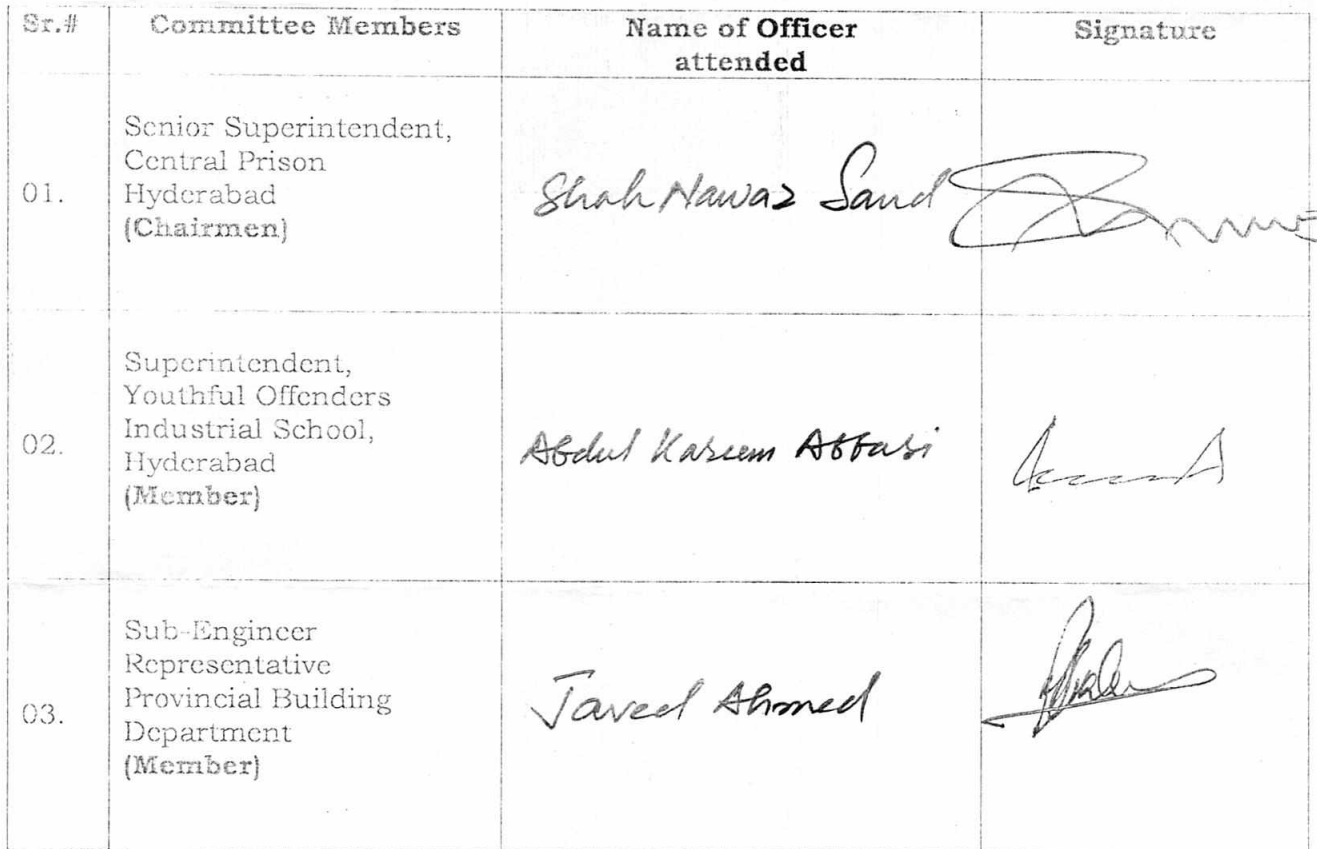 Sr.# Committee Members Name of Officer attended Signature
01. Senior Superintendent,
Central Prison
Hyderabad
(Chairmen)
Shah Nawaz Sand
02. Superintendent,
Youthful Offenders
Industrial School,
Hyderabad
(Member)
Abdul Kareem Abbasi
03. Sub-Engineer
Representative
Provincial Building
Department
(Member)
Javed Ahmed